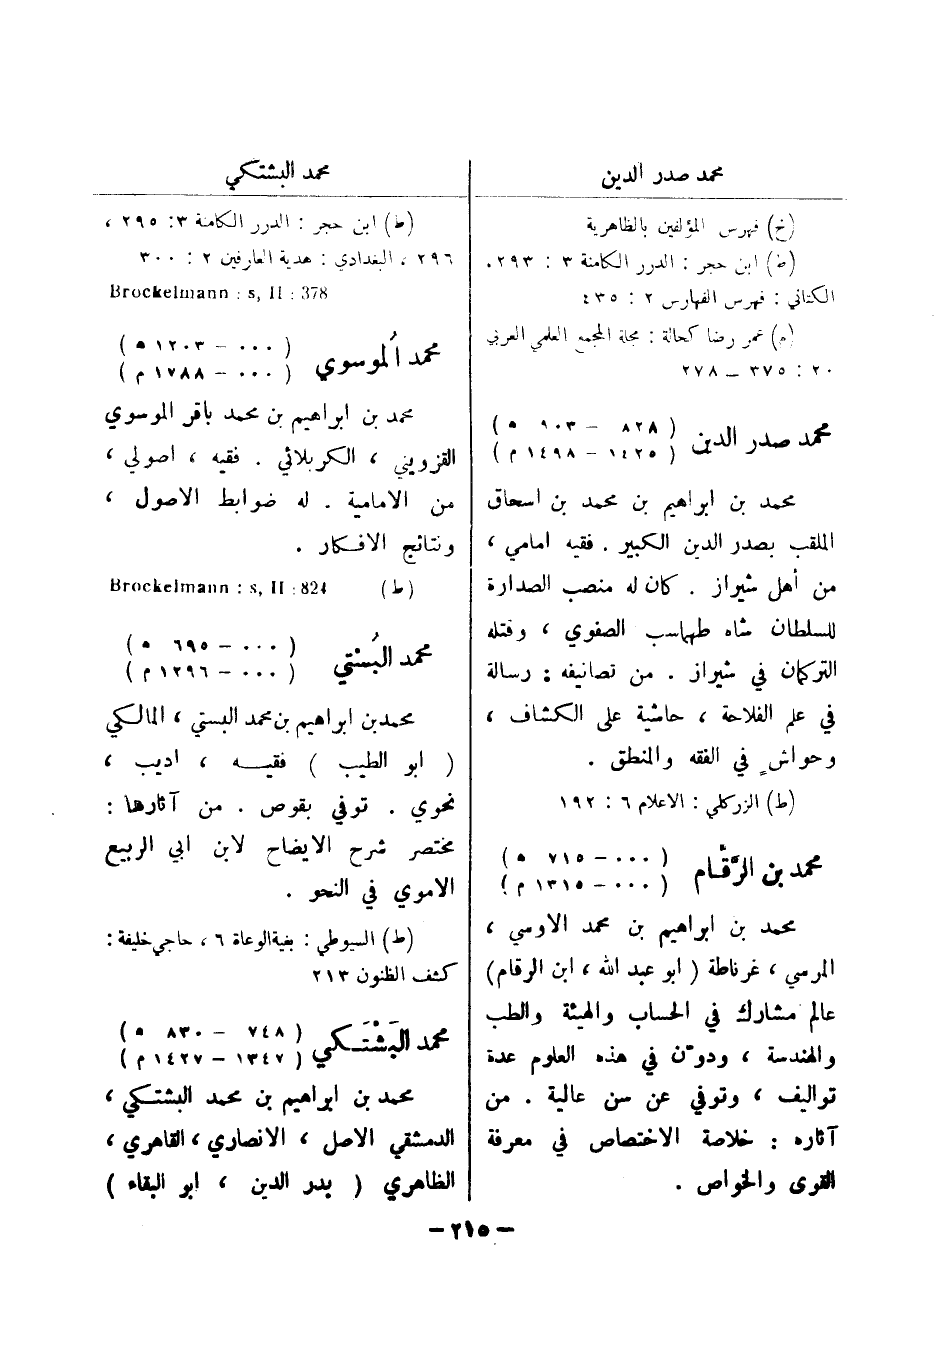 محمد صدر الدين
(خ) فهرس المؤلفين بالظاهرية
(ط) ابن حجر : الدرر الكامنة ٣ : ٢٩٣،
الكتاني : فهرس الفهارس ٢ : ٤٣٥
(م) عمر رضا كحالة : مجلة المجمع العلمي العربي
٢٠ : ٣٧٥ – ٢٧٨
محمد صدر الدين ( ٨٢٨ – ٩٠٣ ه )
( ١٤٢٥ – ١٤٩٨ م )
محمد بن ابراهيم بن محمد بن اسحاق
الملقب بصدر الدين الكبير . فقيه امامي ،
من أهل شيراز . كان له منصب الصدارة
للسلطان شاه طهماسب الصفوي ، وقتله
التركمان في شيراز . من تصانيفه : رسالة
في علم الفلاحة ، حاشية على الكشاف ،
وحواشٍ في الفقه والمنطق .
(ط) الزركلي : الاعلام ٦ : ١٩٢
محمد بن الرَّقّام ( ٠٠٠ – ٧١٥ ه )
( ٠٠٠ – ١٣١٥ م )
محمد بن ابراهيم بن محمد الاوسي ،
المرسي ، غرناطة ( ابو عبد الله ، ابن الرقام)
عالم مشارك في الحساب والهيئة والطب
والهندسة ، ودوّن في هذه العلوم عدة
تواليف ، وتوفي عن سن عالية . من
آثاره : خلاصة الاختصاص في معرفة
القوى والخواص .
محمد البشتكي
(ط) ابن حجر : الدرر الكامنة ٣: ٢٩٥ ،
٢٩٦ ، البغدادي : هدية العارفين ٢ : ٣٠٠
Brockelmann : s, II : 378
محمد المُوسوي ( ٠٠٠ – ١٢٠٣ ه )
( ٠٠٠ – ١٧٨٨ م )
محمد بن ابراهيم بن محمد باقر الموسوي
القزويني ، الكربلائي . فقيه ، اصولي ،
من الامامية . له ضوابط الاصول ،
ونتائج الافكار .
(ط) Brockelmann : s, II : 824
محمد البُستي ( ٠٠٠ – ٦٩٥ ه )
( ٠٠٠ – ١٢٩٦ م )
محمد بن ابراهيم بن محمد البستي ، المالكي
( ابو الطيب ) فقيه ، اديب ،
نحوي . توفي بقوص . من آثارها :
مختصر شرح الايضاح لابن ابي الربيع
الاموي في النحو .
(ط) السيوطي : بغية الوعاة ٦ ، حاجي خليفة :
كشف الظنون ٢١٣
محمد البَشْتَكي ( ٧٤٨ – ٨٣٠ ه )
( ١٣٤٧ – ١٤٢٧ م )
محمد بن ابراهيم بن محمد البشتكي ،
الدمشقي الاصل ، الانصاري ، القاهري ،
الظاهري ( بدر الدين ، ابو البقاء )
– ٢١٥ –